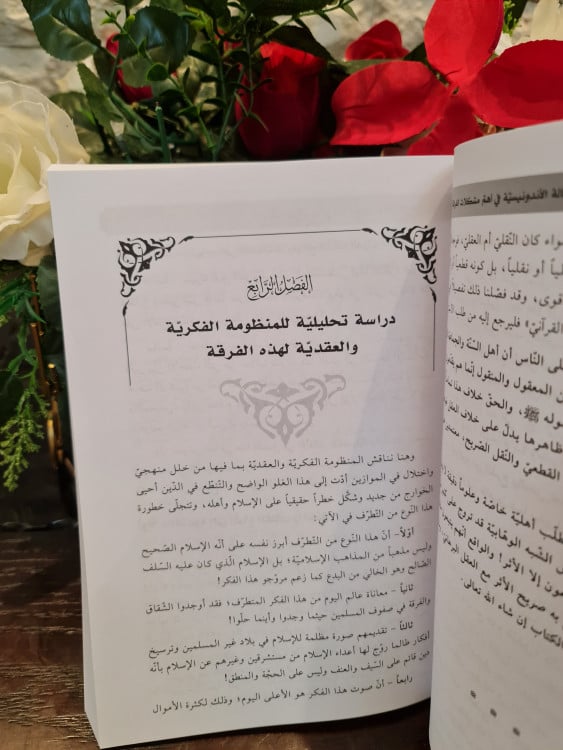 الفصل الرابع
دراسة تحليليّة للمنظومة الفكريّة
والعقديّة لهذه الفرقة
وهنا نناقش المنظومة الفكريّة والعقديّة بما فيها من خلل منهجيّ
واختلال في الموازين أدّت إلى هذا الغلو الواضح والتنطّع في الدّين أحيى
الخوارج من جديد وشكّل خطراً حقيقياً على الإسلام وأهله، وتتجلّى خطورة
هذا النّوع من التّطرّف في الآتي:
أوّلاً - أنّ هذا النّوع من التّطرّف أبرز نفسه على أنّه الإسلام الصّحيح
وليس مذهباً من المذاهب الإسلاميّة؛ بل الإسلام الّذي كان عليه السّلف
الصّالح وهو الخالي من البدع كما زعم مروّجو هذا الفكر!
ثانياً - معاناة عالم اليوم من هذا الفكر المتطرّف؛ فقد أوجدوا الشّقاق
والفرقة في صفوف المسلمين حيثما وجدوا وأينما حلّوا!
ثالثاً - تقديمهم صورة مظلمة للإسلام في بلاد غير المسلمين وترسيخ
أفكار طالما روّج لها أعداء الإسلام من مستشرقين وغيرهم عن الإسلام بأنّه
دين قائم على السّيف والعنف وليس على الحجّة والمنطق!
رابعاً - انّ صوت هذا الفكر هو الأعلى اليوم؛ وذلك لكثرة الأموال
الأندونيسيّة في أهمّ مشكلات
سواء كان النّقليّ أم العقليّ،
أو نقلياً، بل كونه قطعياً
أقوى، وقد فصّلنا ذلك
القرآنيّ» فليرجع إليه من طلب
على النّاس أن أهل السّنّة والجماعة
من المعقول والمنقول إنّما هم
ﷺ، والحق خلاف هذا
ظاهرها يدلّ على خلاف العقل
القطعيّ والنّقل الصّريح،
أهليّة خاصّة وعلوماً دقيقة
الشّبه الوهّابيّة قد تروج على
إلا الأثر! والواقع أنّهم
به صريح الأثر مع العقل
الكتاب إن شاء الله تعالى.
* * *